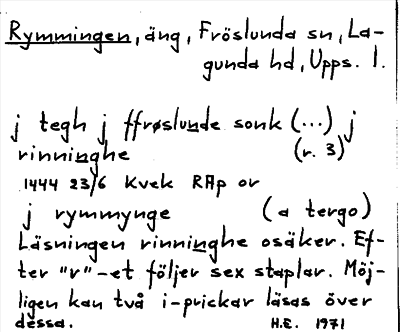 Rymmingen, äng, Fröslunda sn, La-
gunda hd, Upps. l.
j tegh j ffrøslunde sonk (...) j
rinninghe (r. 3)
1444 23/6 Kvek RAp or
j rymmynge (a tergo)
Läsningen rinninghe osäker. Ef-
ter "r"-et följer sex staplar. Möj-
ligen kan två i-prickar läsas över
dessa. H.E. 1971